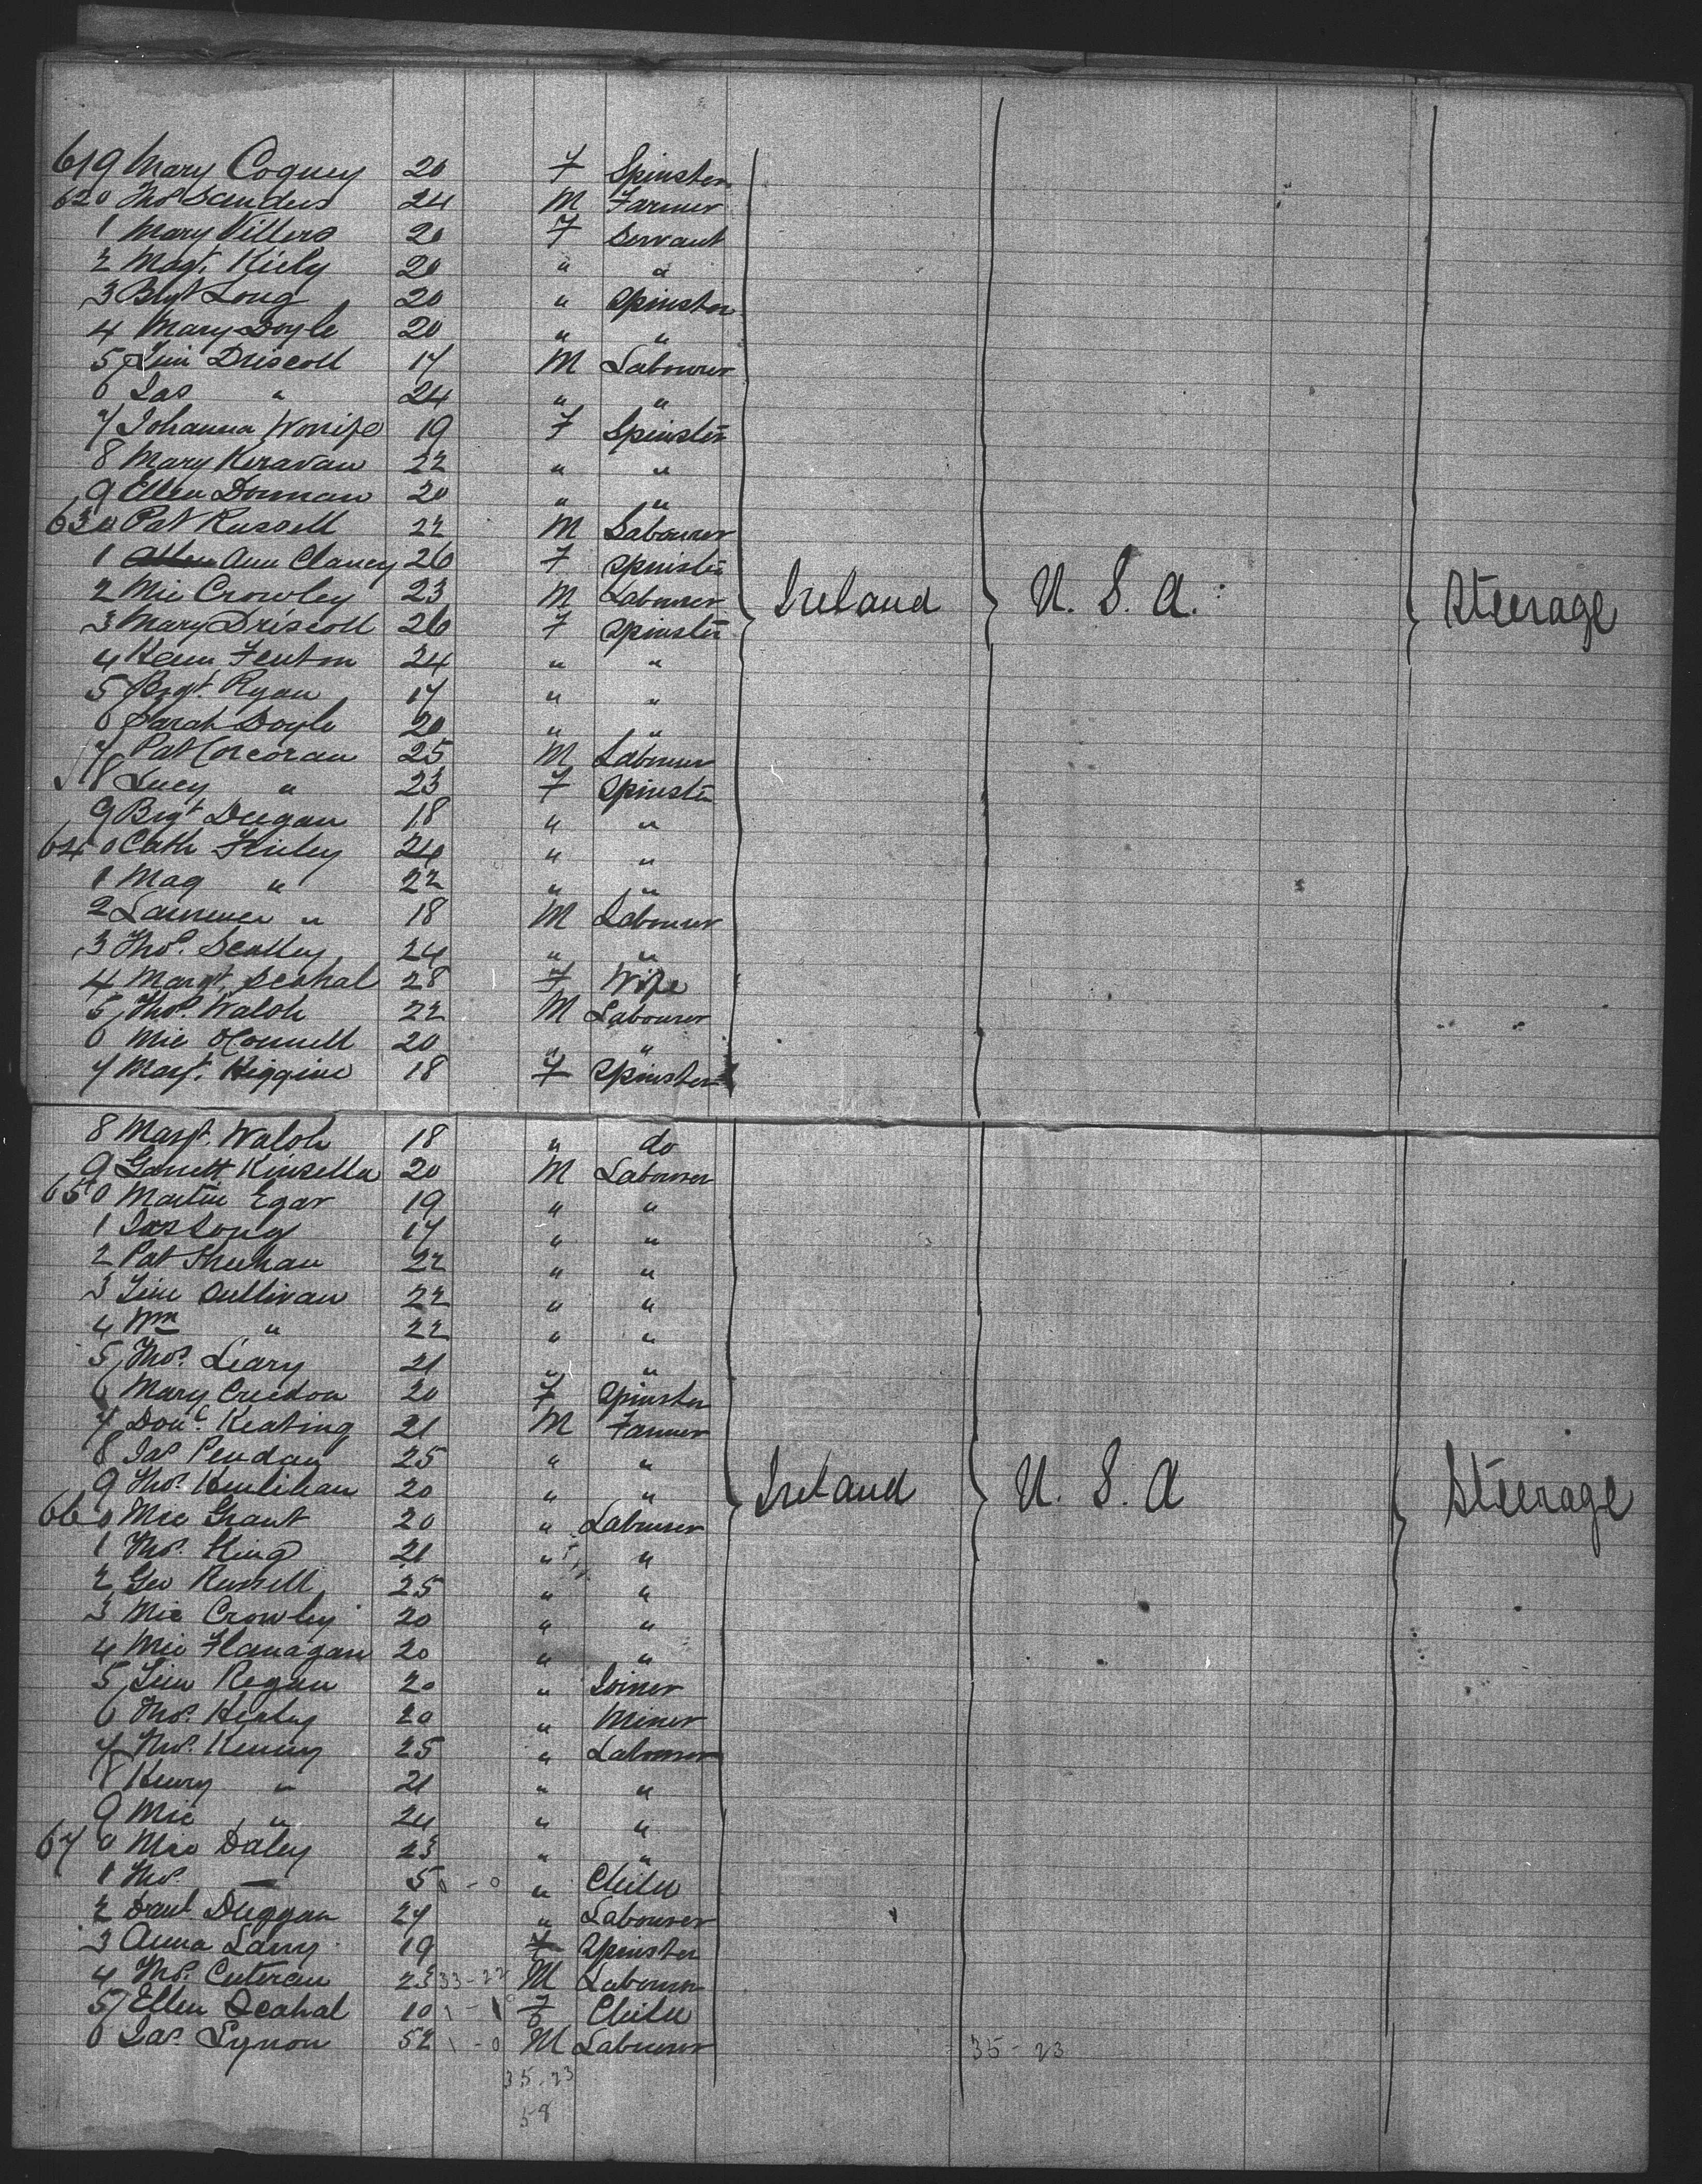 619 Mary Cogney 20 F Spinster
620 Thos Sanders 24 M Farmer
1 Mary Villers 20 F Servant
2 Magt. Kiely 20 " "
3 Bgt Long 20 " Spinster
4 Mary Doyle 20 " "
5 Tim Driscoll 17 M Labourer
6 Jas " 24 " "
7 Johanna 19 F Spinster
8 Mary Keravan 22 " "
9 Ellen Donnan 20 " "
630 Pat Russell 22 M Labourer
1 Ann Clancy 26 F Spinster
2 Mic Crowley 23 M Labourer Ireland U. S. A. Steerage
3 Mary Driscoll 26 F Spinster
4 Fenton 24 " "
5 Bgt. Ryan 17 " "
6 Sarah Doyle 20 " "
7 Pat Corcoran 25 M Labourer
8 Lucy " 23 F Spinster
9 Bgt Deegan 18 " "
640 Cath Finley 24 " "
1 Mag " 22 " "
2 Lawrence " 18 M Labourer
3 Thos. Scalley 24 " "
4 Margt. Scahal 28 F Wife
5 Thos. Walsh 22 M Labourer
6 Mic OConnell 20 " "
7 Margt. Higgins 18 F Spinster
8 Margt. Walsh 18 " do
9 Garrett Kinsella 20 M Labourer
650 Martin Egar 19 " "
1 Jas Long 17 " "
2 Pat Sheehan 22 " "
3 Tim Sullivan 22 " "
4 Wm " 22 " "
5 Thos. Leary 21 " "
6 Mary Creedon 20 F Spinster
7 Keating 21 M Farmer
8 Jas 25 " "
9 Thos. 20 " " Ireland U. S. A Steerage
660 Mic Grant 20 " Labourer
1 Thos. King 21 " "
2 Geo Russell 25 " "
3 Mic Crowley 20 " "
4 Mic Flanagan 20 " "
5 Tim Regan 20 " Joiner
6 Thos. Healey 20 " Miner
7 Thos. Kenny 25 " Labourer
8 Henry " 21 " "
9 Mic " 24 " "
670 Mic Daley 23 " "
1 Thos. — 5 - 0 " Child
2 Danl. Duggan 27 Labourer
3 Anna Larry 19 F Spinster
4 Thos. 23 33-22 M Labourer
5 Ellen Scahal 10 1 - 1 F Child
6 Jas. Lynon 52 1 - 0 M Labourer 35 - 23
35.23
58